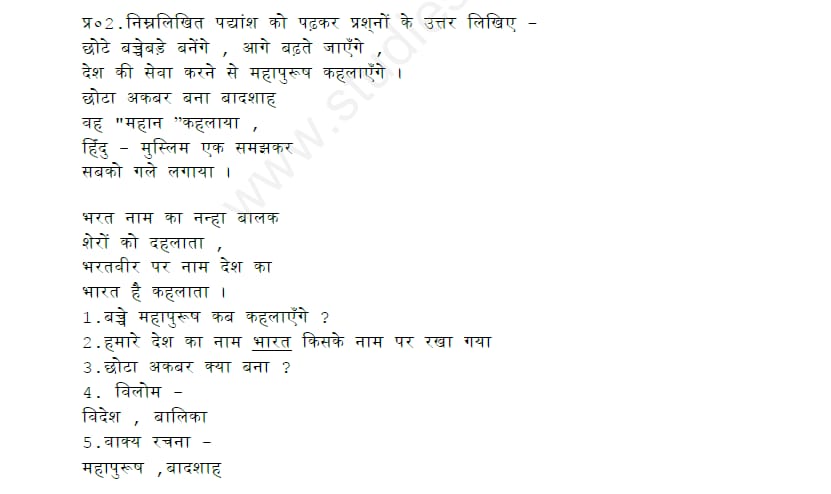 प्र०2.निम्नलिखित पद्यांश को पढ़कर प्रश्नों के उत्तर लिखिए -
छोटे बच्चेबड़े बनेंगे , आगे बढ़ते जाएँगे ,
देश की सेवा करने से महापुरूष कहलाएँगे ।
छोटा अकबर बना बादशाह
वह "महान ”कहलाया ,
हिंदु - मुस्लिम एक समझकर
सबको गले लगाया ।
भरत नाम का नन्हा बालक
शेरों को दहलाता ,
भरतवीर पर नाम देश का
भारत है कहलाता ।
1.बच्चे महापुरूष कब कहलाएँगे ?
2.हमारे देश का नाम भारत किसके नाम पर रखा गया
3.छोटा अकबर क्या बना ?
4. विलोम -
विदेश , बालिका
5.वाक्य रचना -
महापुरूष ,बादशाह
www.studies